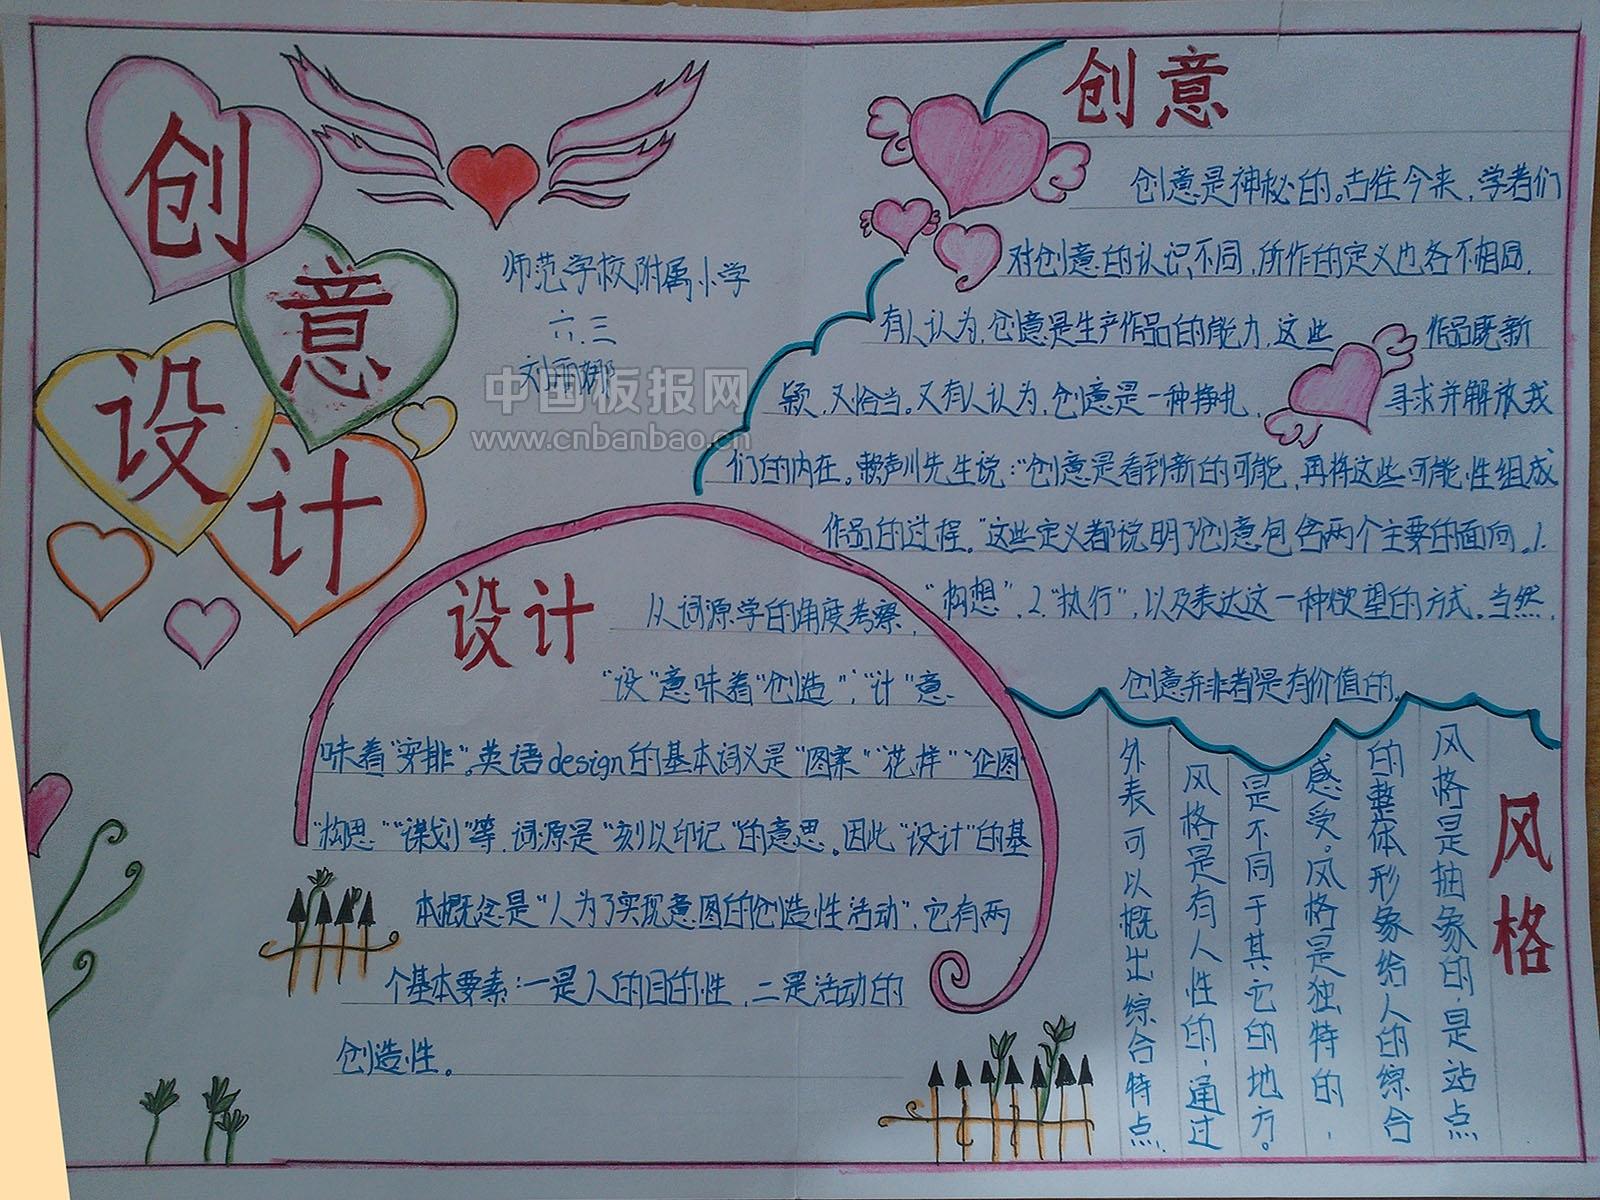 创
意
设
计
师范学校附属小学
六.三
刘雪娜
中国板报网
www.cnbanbao.cn
创意
创意是神秘的。古往今来,学者们
对创意的认识不同,所作的定义也各不相同.
有人认为,创意是生产作品的能力,这些作品既新
颖,又恰当。又有人认为,创意是一种挣扎,寻求并解放我
们的内在。赖声川先生说:“创意是看到新的可能,再将这些可能性组成
作品的过程。”这些定义都说明了创意包含两个主要的面向。1.
“构想”,2.“执行”,以及表达这一种欲望的方式。当然,
创意并非都是有价值的。
设计
从词源学的角度考察,
“设”意味着“创造”,“计”意
味着“安排”。英语design的基本词义是“图案”“花样”“企图”
“构思”“谋划”等,词源是“刻以印记”的意思。因此“设计”的基
本概念是“人为了实现意图的创造性活动”,它有两
个基本要素:一是人的目的性,二是活动的
创造性。
风格
风格是抽象的,是站点
的整体形象给人的综合
感受。风格是独特的,
是不同于其它的地方。
风格是有人性的,通过
外表可以概出综合特点.